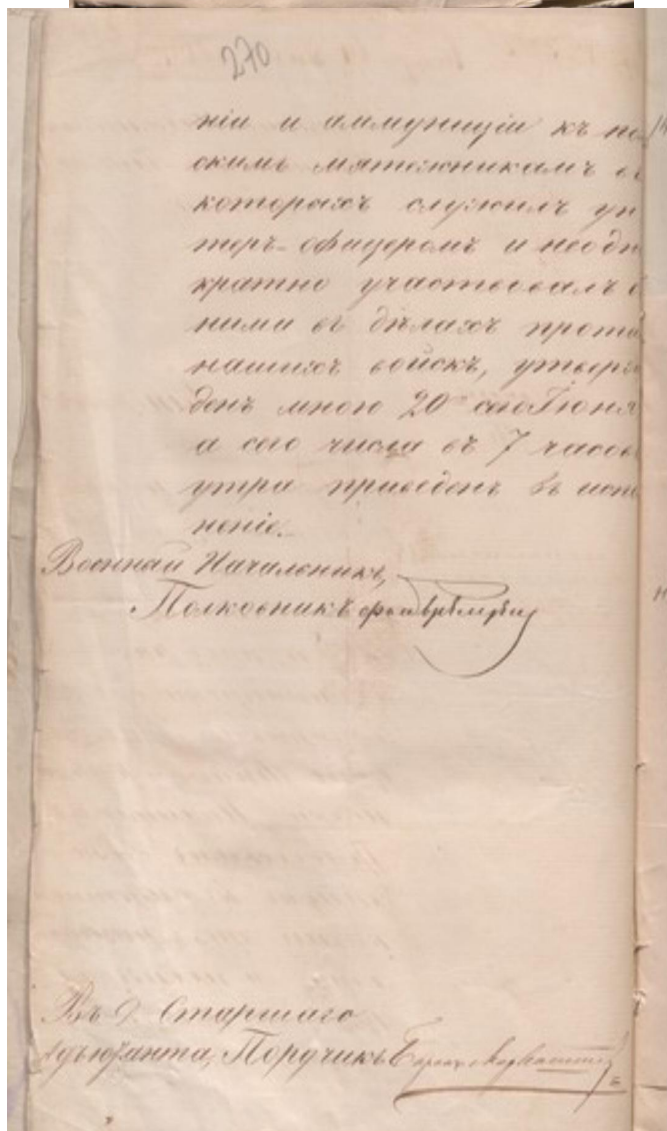 270
ніи и аммуниціи къ по
скимъ мятежникамъ въ
которыхъ служилъ ун
теръ-офицеромъ и неодн
кратно участвовалъ с
ними въ дѣлахъ проти
нашихъ войскъ, утверж
денъ мною 20го сего Іюня
а сего числа въ 7 часов
утра приведенъ въ испо
неніе.
Военный Начальникъ,
Полковникъ фонъ
Въ д. Старшаго
Адъютанта, Поручикъ